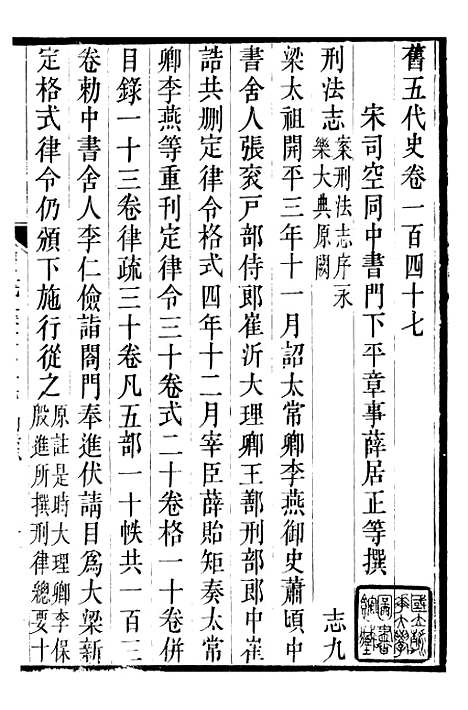 舊五代史卷一百四十七
宋司空同中書門下平章事薛居正等撰
刑法志 案刑法志序永樂大典原闕 志九
梁太祖開平三年十一月詔太常卿李燕御史蕭頃中
書舍人張衮戸部侍郎崔沂大理卿王鄯刑部郎中崔
誥共删定律令格式四年十二月宰臣薛貽矩奏太常
卿李燕等重刊定律令三十卷式二十卷格一十卷併
目錄一十三卷律疏三十卷凡五部一十帙共一百三
卷勅中書舍人李仁儉詣閤門奉進伏請目爲大梁新
定格式律令仍頒下施行從之 原註是時大理卿李保殷進所撰刑律總要十